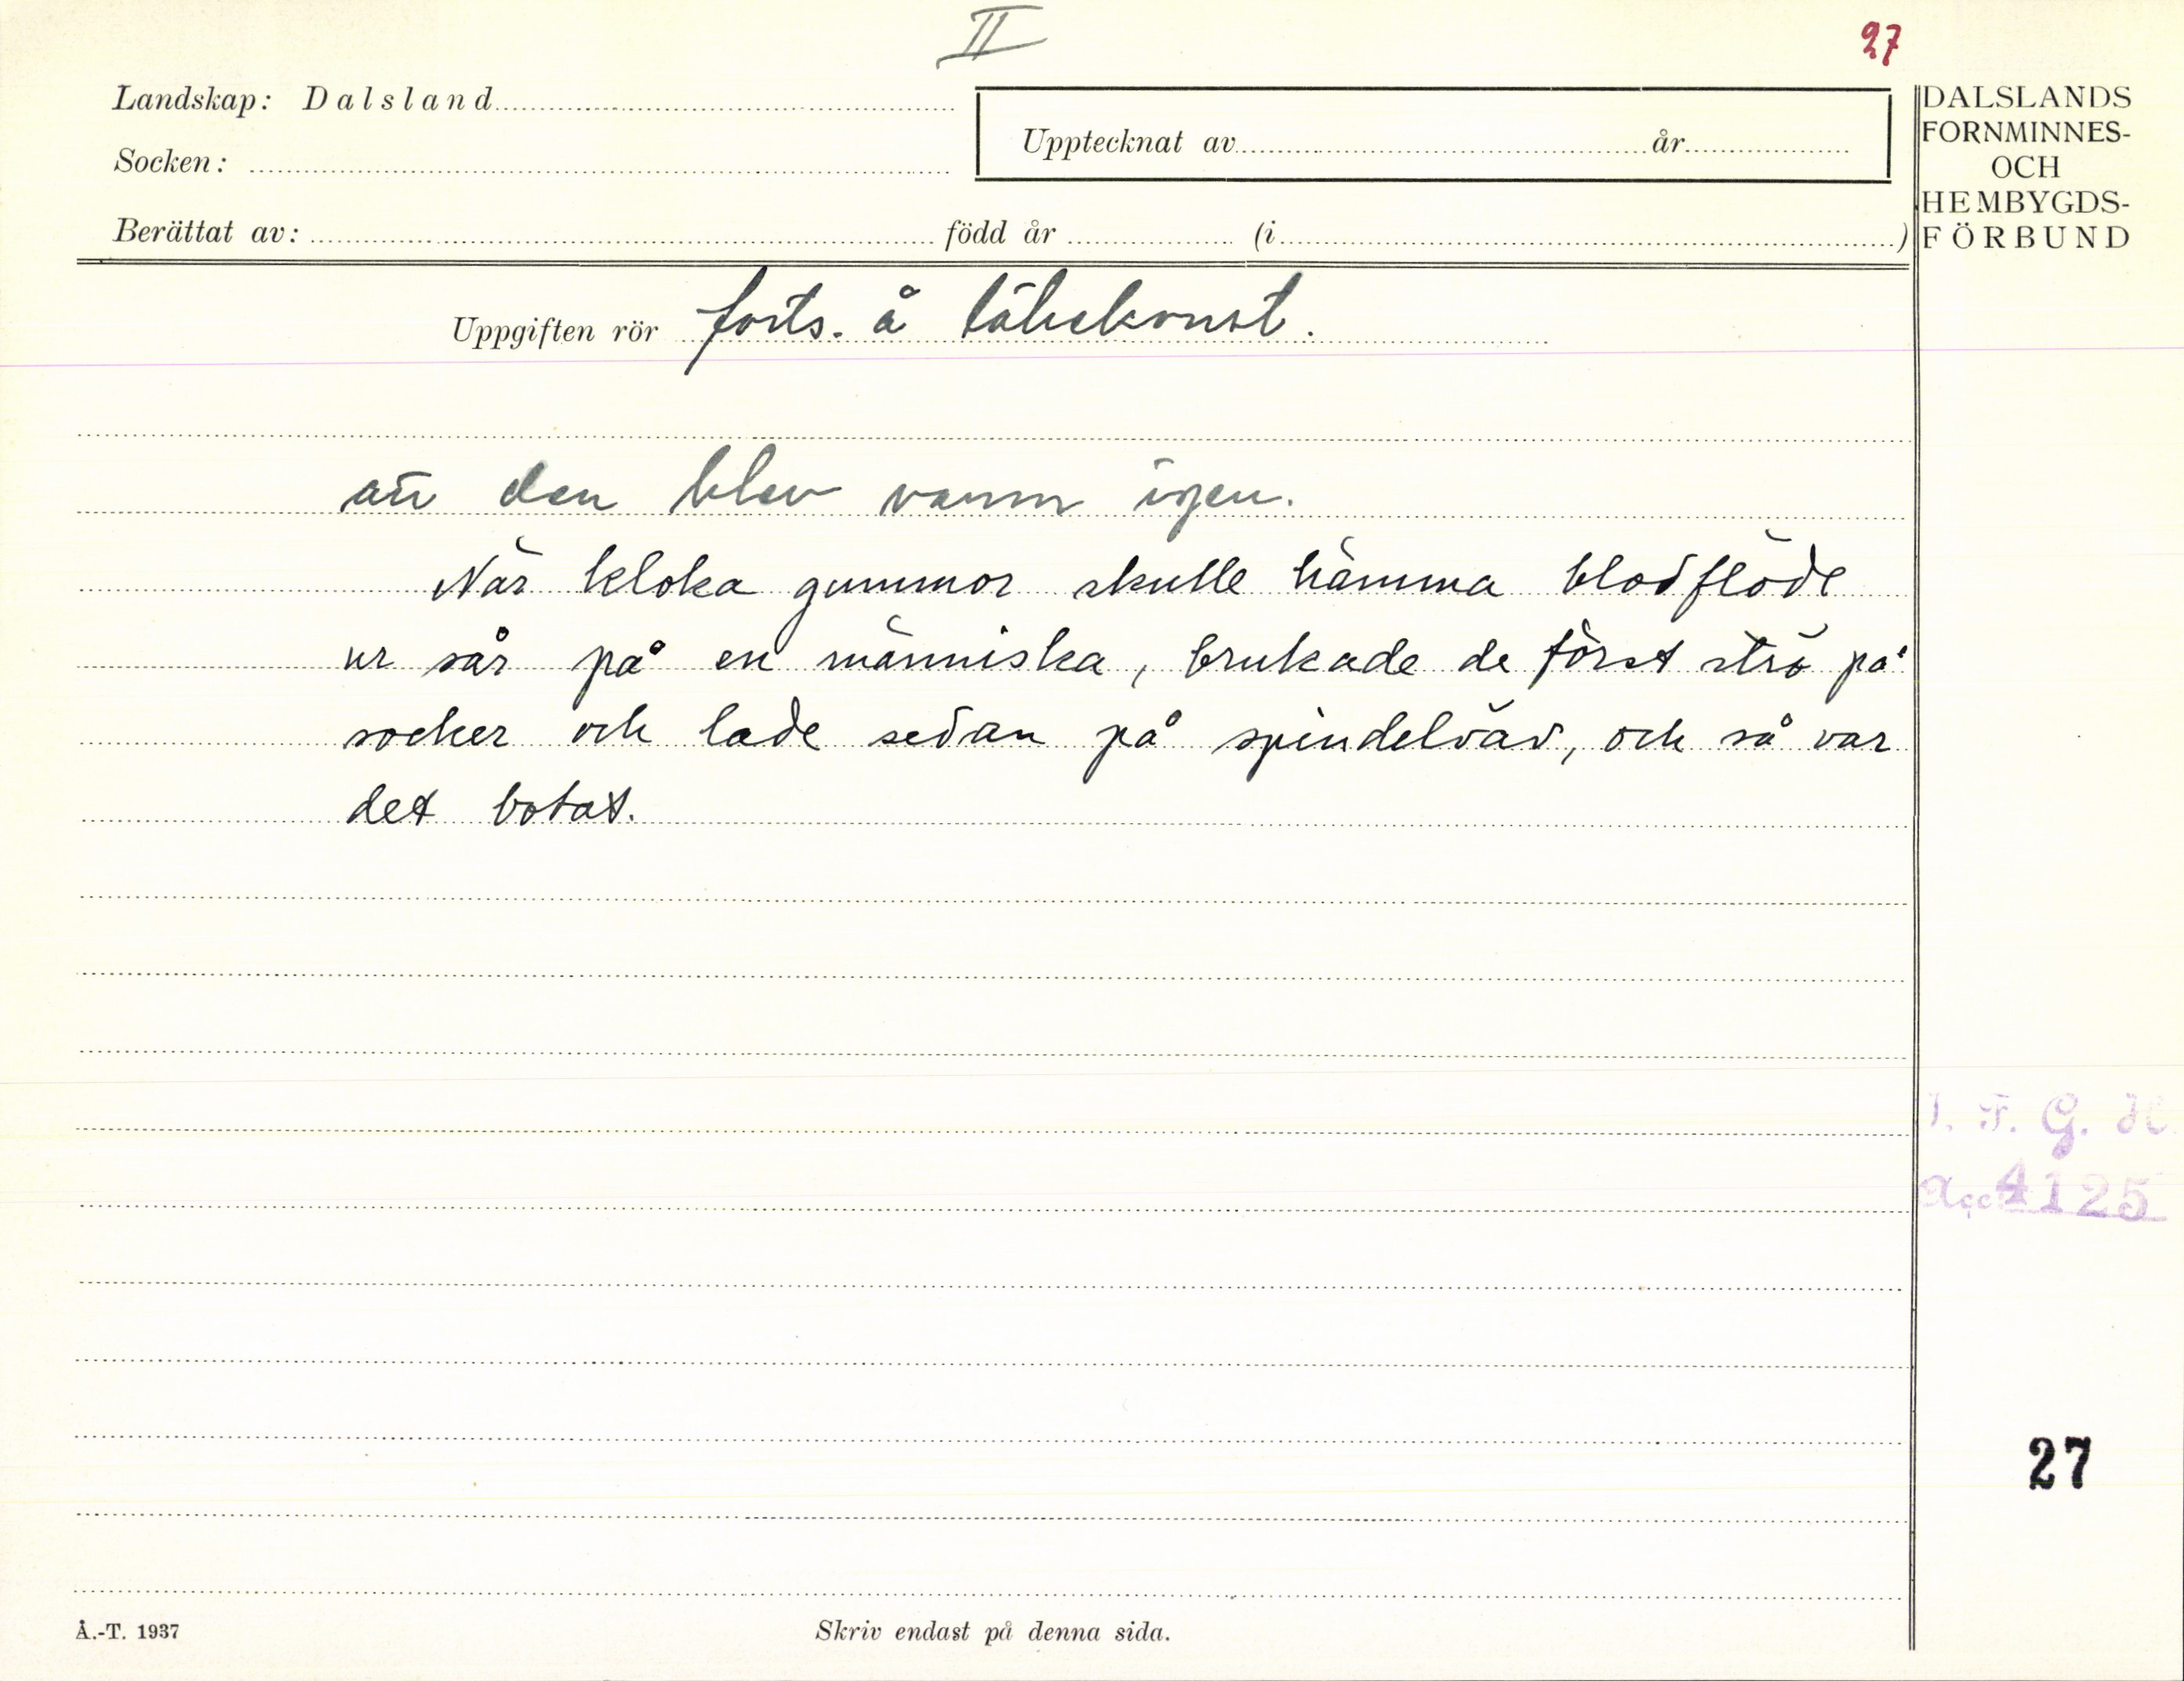 II
27
Landskap: Dalsland
Socken:
Upptecknat av år
Berättat av: född år (i )
DALSLANDS
FORNMINNES-
OCH
HEMBYGDS-
FÖRBUND
Uppgiften rör forts. å läkekonst.
att den blev varm igen.
När kloka gummor skulle hämma blodflöde
ur sår på en människa, brukade de först strö på
socker och lade sedan på spindelväv, och så var
det botat.
I. F. G. H.
Acc 4125
27
Å.-T. 1937
Skriv endast på denna sida.